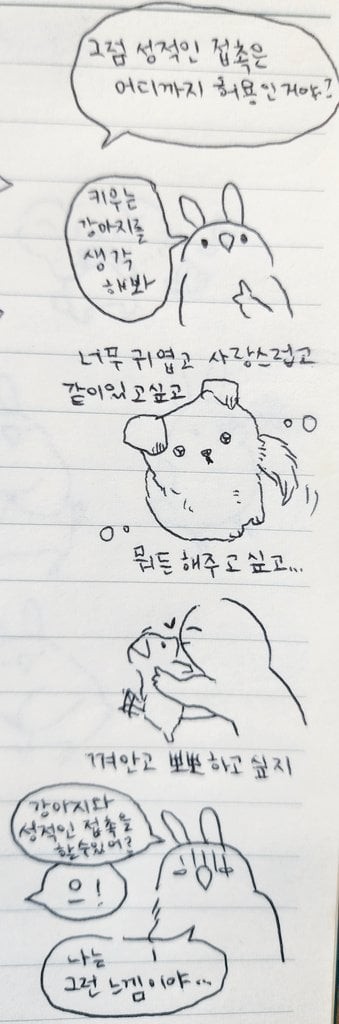 그럼 성적인 접촉은
어디까지 허용인거야?
키우는
강아지를
생각
해봐
너무 귀엽고 사랑스럽고
같이있고싶고
뭐든 해주고 싶고...
껴안고 뽀뽀하고 싶지
강아지와
성적인 접촉을
할수있어?
으!
나는
그런 느낌이야...